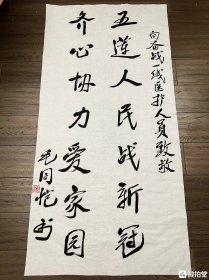 向奋战一线医护人员致敬
五莲人民战新冠
齐心协力爱家园
毛同恺书